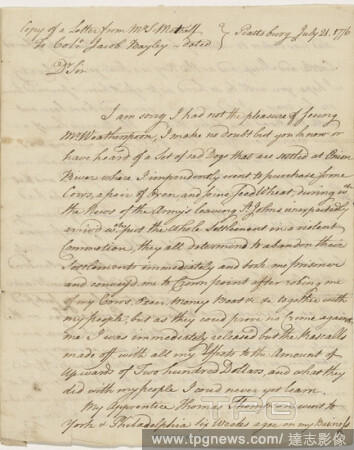 Copy of a Letter from Mr S. Metcalf
To Colo. Jacob Bayley - dated } Plattsburg July 21. 1776
Dr Sir
I am sorry I had not the pleasure of seeing
Mr Weatherspoon, I make no doubt but you know or
have heard of a Set of red Dogs that are settled at Onion
River where I imprudently went to purchase some
Cows, a pair of Oxen, and some seed Wheat, during wch
the News of the Army's leaving St Johns unexpectedly
arriv'd wch put the Whole Settlement in a violent
Commotion, they all determin'd to abandon their
Settlements immediately and took me prisoner
and convey'd me to Crown point after robing me
of my Cows, Oxen, Money Boat &c &c together with
my people; but as they could prove no Crime against
me I was immediately released but the Rascalls
made off with all my Effects to the Amount of
Upwards of Two hundred Dollars, and what they
did with my people I could never yet learn.
My Apprentice Thomas went to
York & Philadelphia six Weeks ago on my Business
TPG
www.tpgnews.com / 達志影像